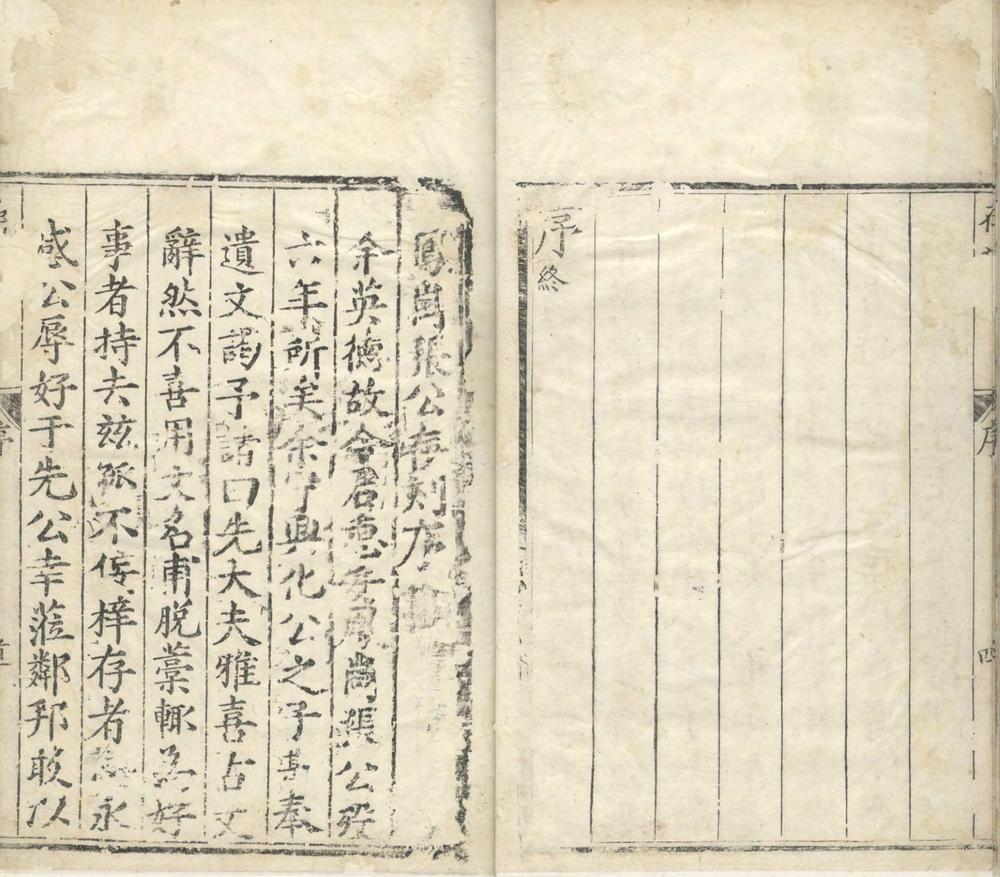 序
四
序終
鳳崗張公存刻序
余英德故令君惠安鳳崗張公歿
六年所矣余守興化公之子奉
遺文謁予請曰先大夫雅喜古文
辭然不喜用文名甫脫藁輒為好
事者持去茲孤不佞梓存者為永
感公辱好于先公幸蒞鄰邦敢以